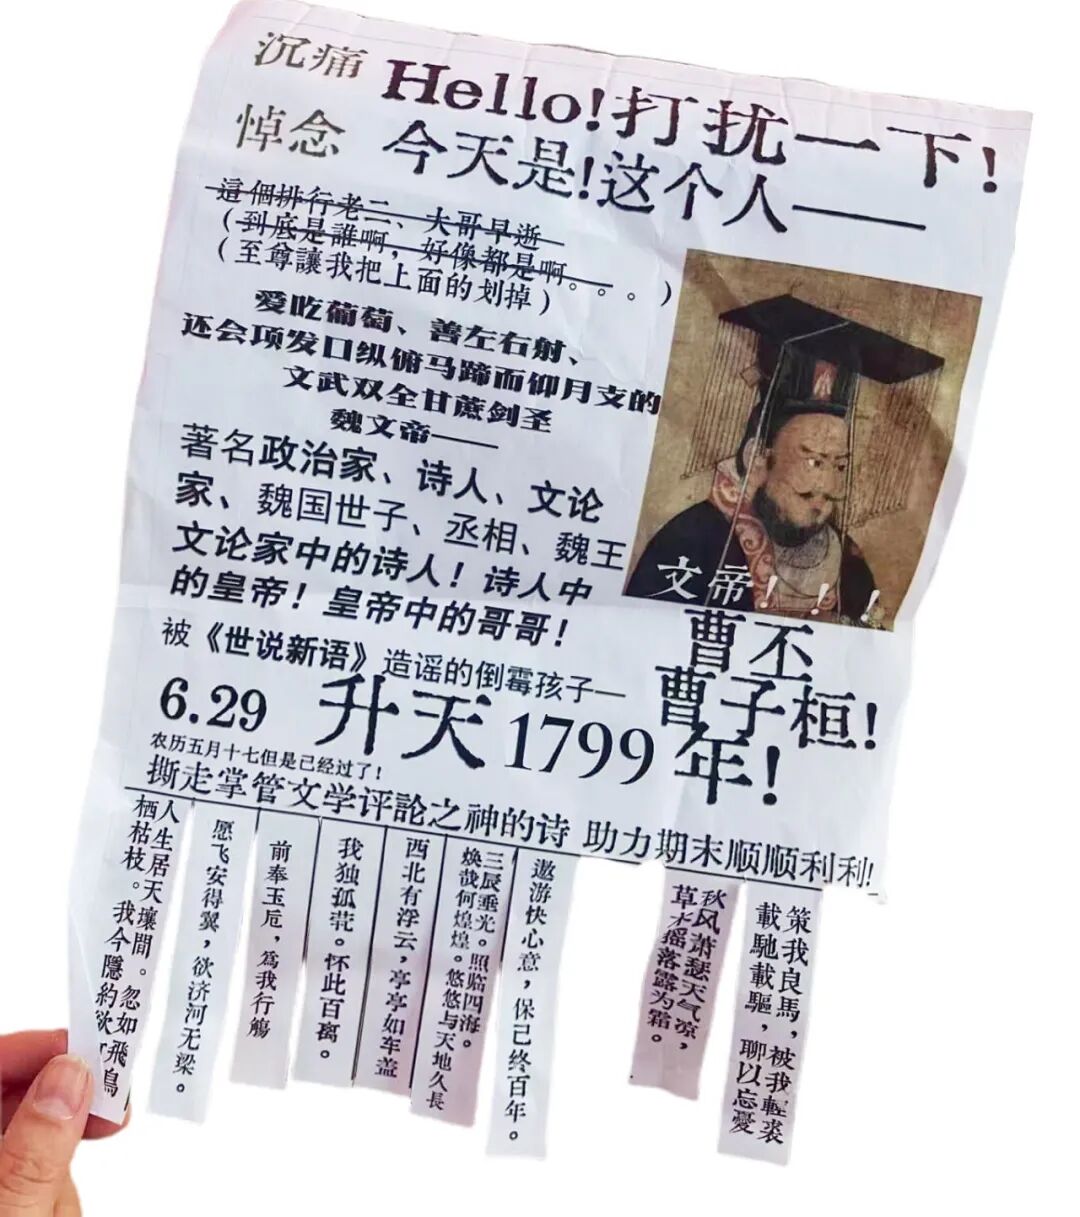 沉痛
悼念
Hello!打扰一下!
今天是!这个人——
這個排行老二、大哥早逝
(到底是誰啊,好像都是啊。。。)
(至尊讓我把上面的划掉)
爱吃葡萄、善左右射、
还会项发口纵俯马蹄而仰月支的
文武双全甘蔗剑圣
魏文帝——
著名政治家、诗人、文论
家、魏国世子、丞相、魏王
文论家中的诗人!诗人中
的皇帝!皇帝中的哥哥!
被《世说新语》造谣的倒霉孩子—
文帝!!!
曹丕
曹子桓!
6.29 升天1799年!
农历五月十七但是已经过了!
撕走掌管文学评論之神的诗 助力期末顺顺利利!
人生居天壤間。忽如飛鳥
栖枯枝。我今隱約欲
愿飞安得翼,欲济河无梁。
前奉玉卮,為我行觴
我独孤茕。怀此百离。
西北有浮云,亭亭如车盖
三辰垂光。照临四海。
焕哉何煌煌。悠悠与天地久長
遨游快心意,保己终百年。
秋风萧瑟天气凉,
草木摇落露为霜。
策我良馬,被我輕裘
載馳載驅,聊以忘憂